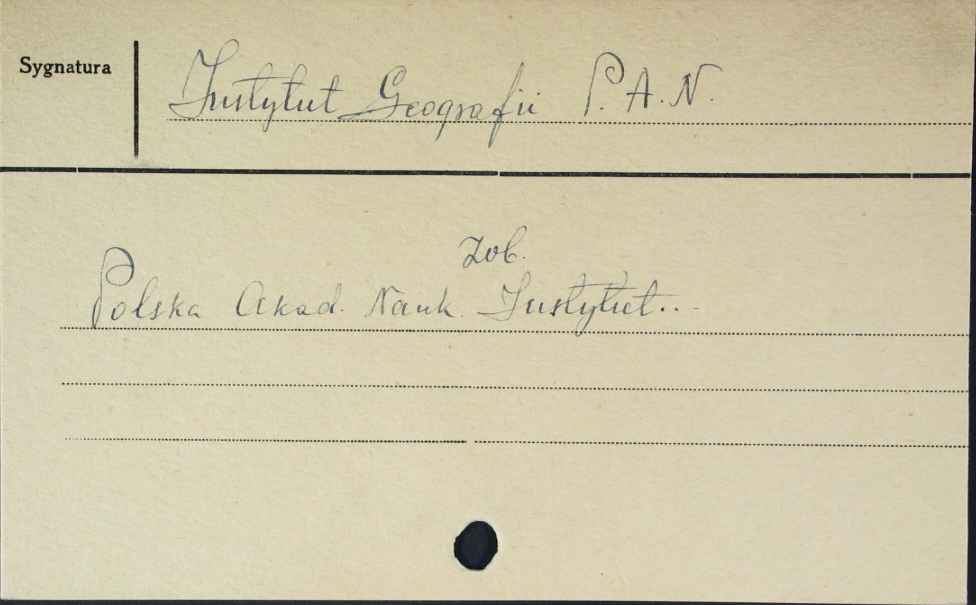 Sygnatura
Instytut Geografii P.A.N.
Zob.
Polska Akad. Nauk. Instytut...